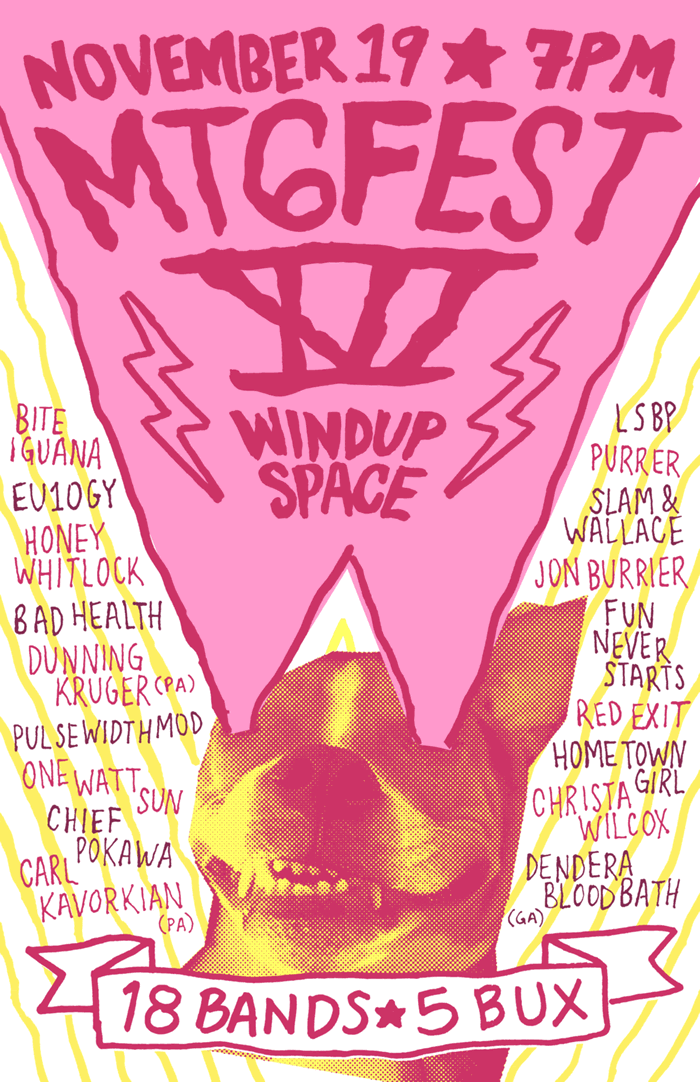 NOVEMBER 19 ★ 7PM
MT6FEST
XVI
WINDUP
SPACE
BITE
IGUANA
EU1OGY
HONEY
WHITLOCK
BAD HEALTH
DUNNING
KRUGER (PA)
PULSEWIDTHMOD
ONE WATT
SUN
CHIEF
POKAWA
CARL
KAVORKIAN
(PA)
LSBP
PURRER
SLAM &
WALLACE
JON BURRIER
FUN
NEVER
STARTS
RED EXIT
HOMETOWN
GIRL
CHRISTA
WILCOX
DENDERA
BLOODBATH
(GA)
18 BANDS ★ 5 BUX